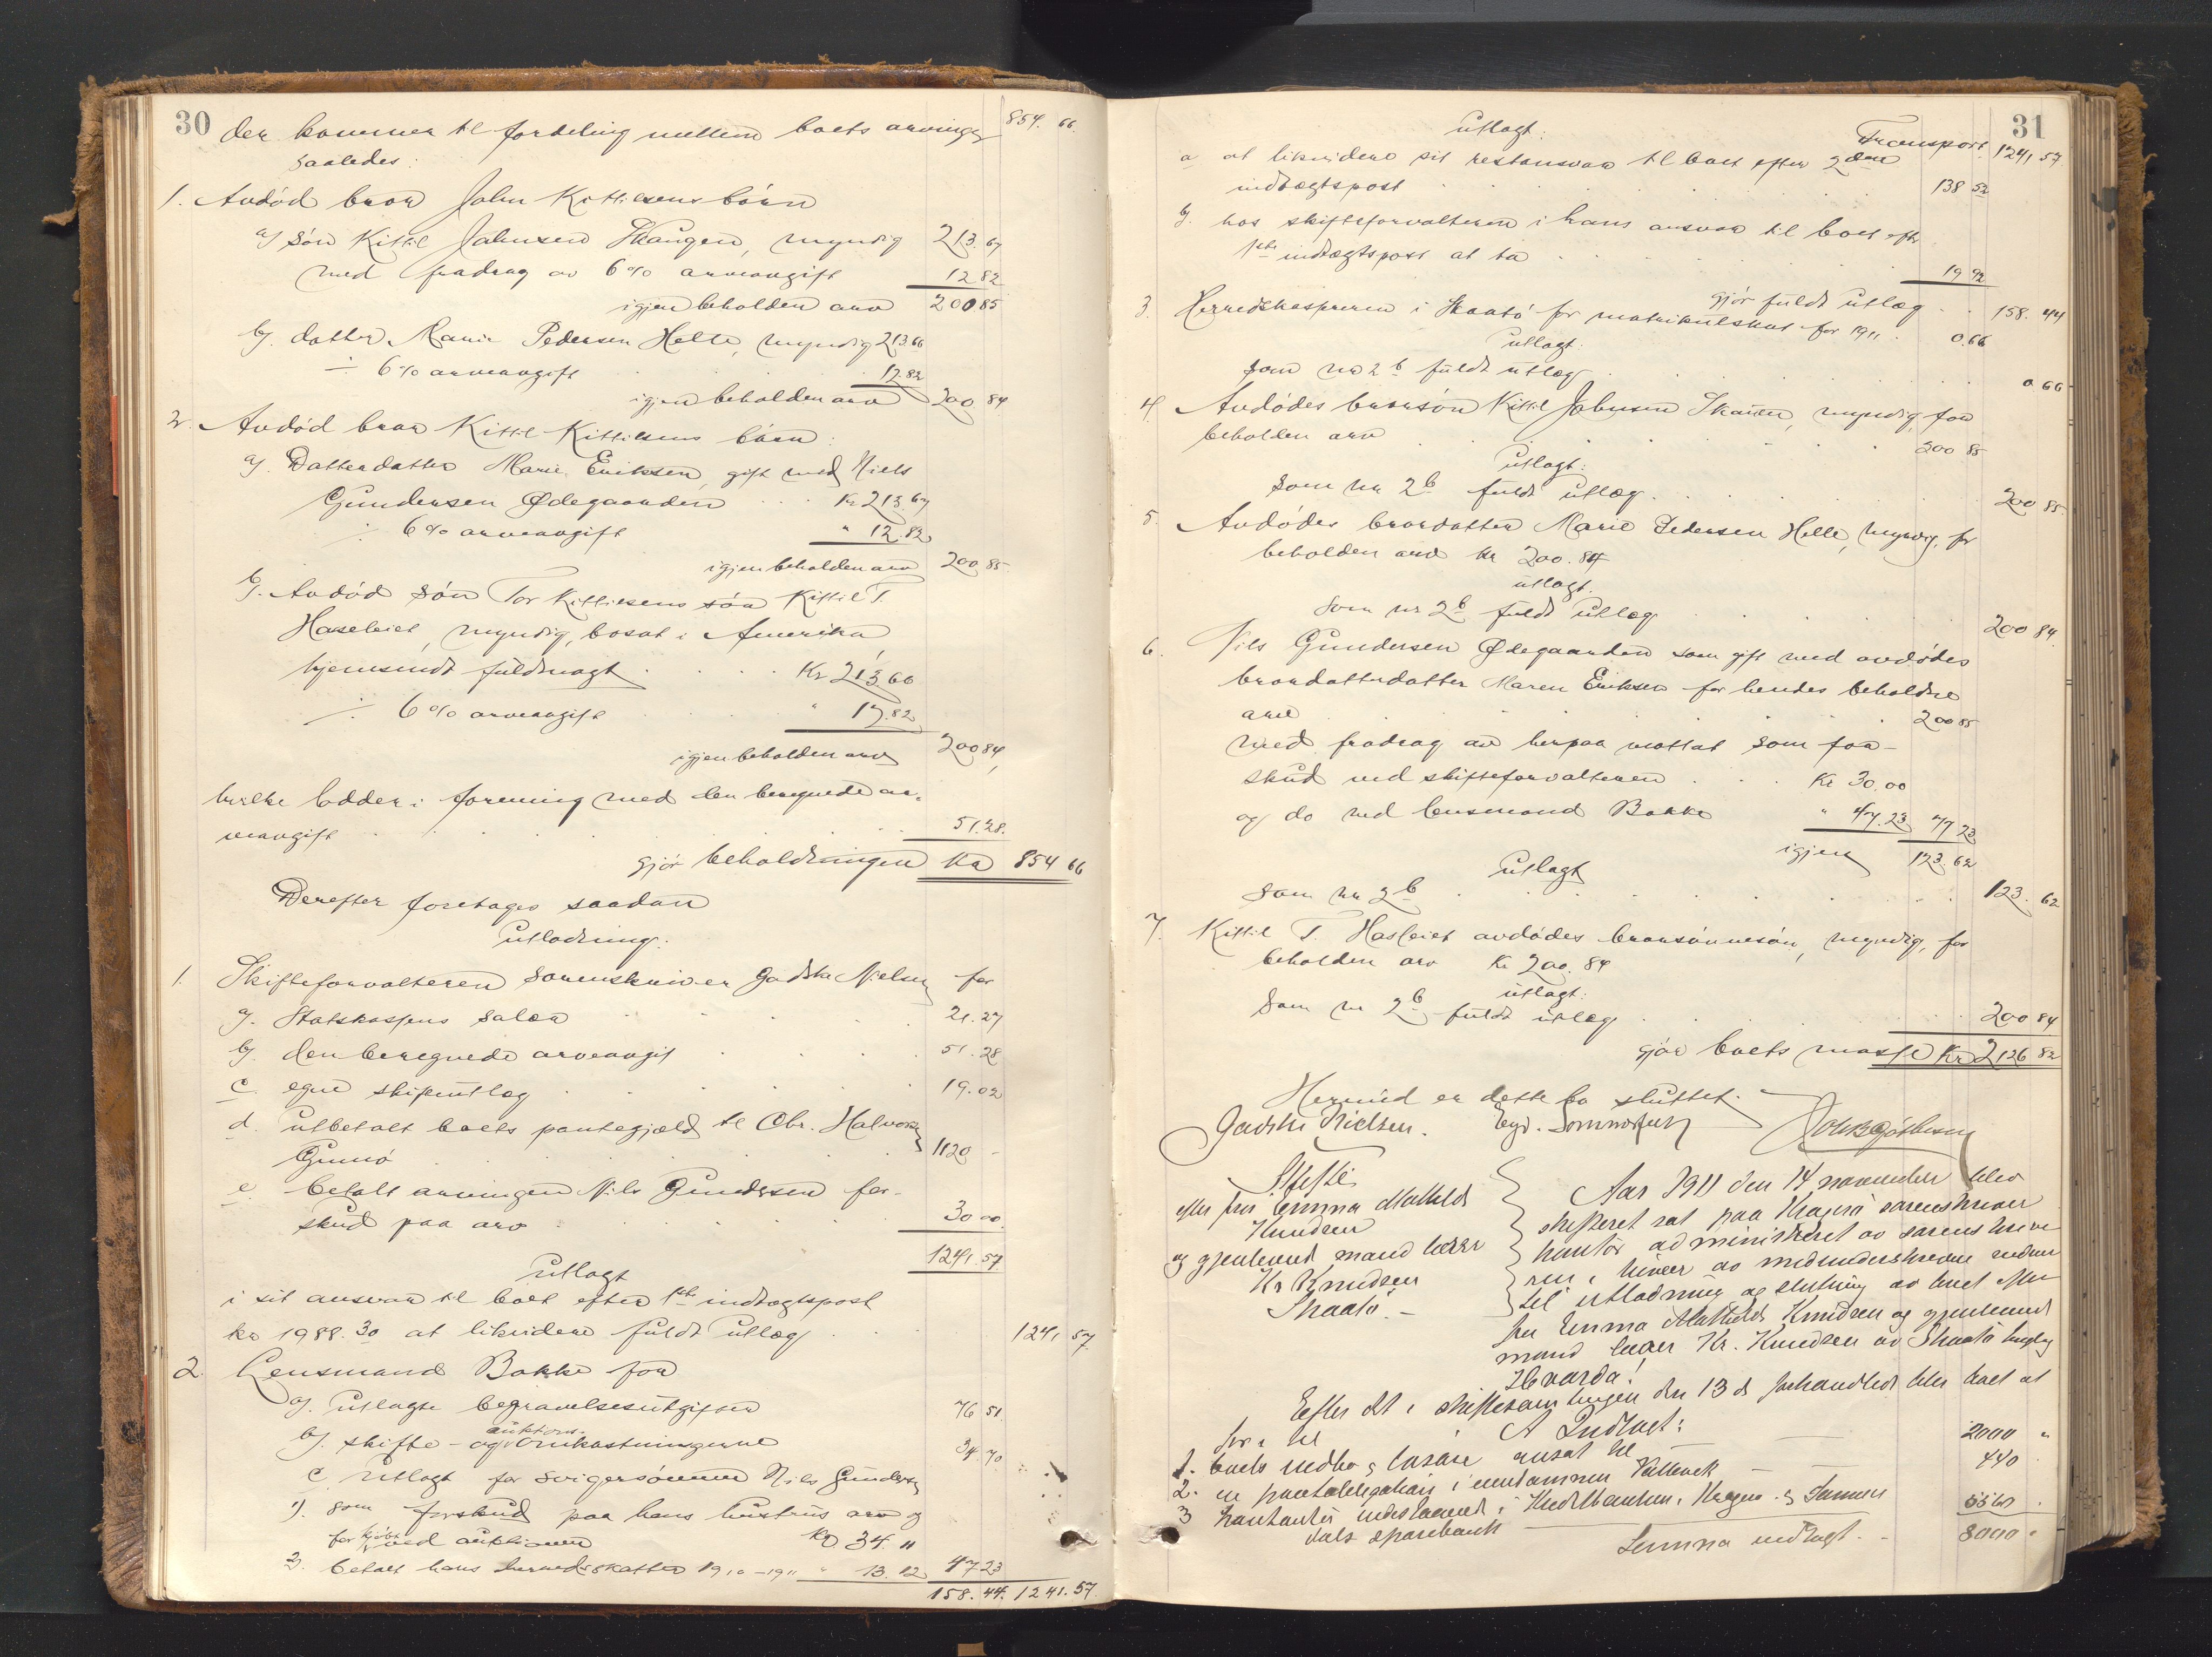 30
der kommer til fordeling mellem boets arvinger 854. 66.
saaledes:
1. Avdød bror John Kittilsens börn
a) sön Kittil Johnsen Skaugen, myndig 213. 67
med fradrag av 6% arveavgift 12 82
igjen beholden arv 200 85
b). datter Marie Pedersen Helle, myndig 213.66
÷ 6% arveavgift 12.82
igjen beholden arv 200 84
2. Avdød bror Kittil Kittilsens börn:
a). Datterdatter Maren Eriksen, gift med Niels
Gundersen Ødegaarden Kr 213.67
÷ 6% arveavgift " 12.82
igjen beholden arv 200 85
b). Avdød søn Tor Kittilsens søn Kittil T.
Hasleiet, myndig, bosat i Amerika
hjemsendt fuldmagt Kr 213.66
÷ 6% arveavgift " 12.82
igjen beholden arv 200 84
hvilke lodder i forening med den beregnede ar-
veavgift 51.28.
gjör beholdningen Kr 854 66
Derefter foretages saadan
Utlodning:
1. Skifteforvalteren sorenskriver Gadske Nielsen for
a). Statskassens salær 21.27
b). den beregnede arveavgift 51.28
c. egne skifteutlæg 19.02
d. utbetalt boets pantegjæld til Chr. Halvorsen
Gumö 1120 -
e. betalt arvingen Nils Gundersen for-
skud paa arv 30 00
1241.57
Utlagt
i sit ansvar til boet efter 1ste indtægtspost
kr 1988.30 at likvidere fuldt utlæg 1241 57.
2. Lensmand Bakke for
a). utlagte begravelsesutgifter 76 51.
auktions-
b). skifte- og omkostningerne 34.70
c. utlagt for svigersønnen Nils Gundersen
1). som forskud paa hans hustrus arv og
for kjøbt ved auktionen Kr 34. "
2. betalt hans herredsskatter 1910-1911 " 13.23 47 23
158.44. 1241.57.
31
utlagt: Transport 1241 57
a at likvidere sit restansvar til boet efter 2den
indtægtspost 138 52
b. hos skifteforvalteren i hans ansvar til boet efter
1ste indtægtspost at ta 19 92
gjör fuldt utlæg 158. 44
3. Herredskassereren i Skaatö for matrikulskat for 1911 0.66
utlagt:
som no 2 b fuldt utlæg 0 66
4. Avdödes brorsön Kittil Johnsen Skauen, myndig, for
beholden arv 200 85
utlagt:
som nr 2 b fuldt utlæg 200 85.
5. Avdödes brordatter Marie Pedersen Helle, myndig, for
beholden arv kr 200.84
utlagt.
som nr 2 b fuldt utlæg 200 84.
6. Nils Gundersen Ødegaarden som gift med avdödes
brordatterdatter Maren Eriksen for hendes beholdne
arv 200 85
med fradrag av herpaa mottat som for-
skud ved skifteforvalteren Kr 30.00
og do ved lensmand Bakke " 47.23 77 23
igjen 123.62
utlagt
som nr 2 b 123. 62
7. Kittil T. Hasleiet avdödes brorsönnesön, myndig, for
beholden arv Kr 200.84
utlagt:
som nr 2 b fuldt utlæg 200 84
gjör boets masse Kr 2126 82
Hermed er dette bo sluttet.
Gadske Nielsen.
Skifte
efter fru Emma Mathilde
Knudsen
og gjenlevende mand lærer
Kr Knudsen
Skaatö.-
Aar 1911 den 14 november blev
skifteret sat paa Kragerö sorenskriver
kontor administreret av sorenskrive
ren i nærvær av medunderskrevne vidner
til utlodning og slutning av boet efter
fru Emma Mathilde Knudsen og gjenlevende
mand lærer Kr. Knudsen av Skaatö
Hvorda!
Efter det i skiftesamlingen den 13 ds forhandlede blev boet at
före til A Indtægt:
1. boets indbo og løsøre ansat til 2000 "
2. en pantobligation i eiendommen 440
3 kontanter indestaaende i Kreditbanken, Kragerö og
dals sparebank 5560
Summa indtægt - 8000 "